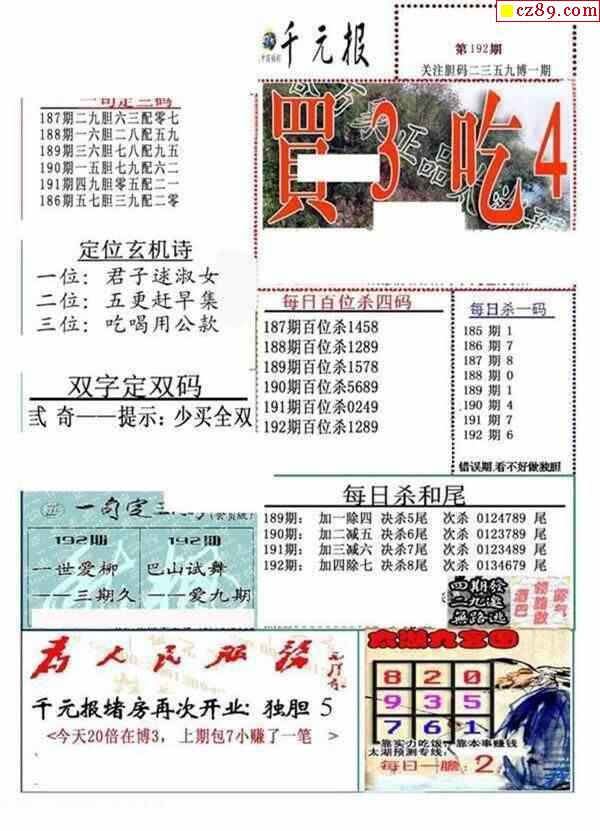 cz89.com
千元报
第192期
关注胆码二三五九博一期
一句定三码
187期二九胆六三配零七
188期一六胆二八配五九
189期三六胆七八配九五
190期一五胆七九配六二
191期四九胆零五配二一
186期五七胆三九配二零
買 3 吃 4
定位玄机诗
一位：君子逑淑女
二位：五更赶早集
三位：吃喝用公款
双字定双码
弍 奇——提示：少买全双
每日百位杀四码
187期百位杀1458
188期百位杀1289
189期百位杀1578
190期百位杀5689
191期百位杀0249
192期百位杀1289
每日杀一码
185期 1
186期 7
187期 8
188期 0
189期 1
190期 4
191期 7
192期 6
错误期,看不好做独胆
每日杀和尾
189期： 加一除四 决杀5尾 次杀 0124789 尾
190期： 加二减五 决杀6尾 次杀 0123789 尾
191期： 加三减六 决杀7尾 次杀 0123489 尾
192期： 加四除七 决杀8尾 次杀 0134679 尾
一句定三
192期 192期
一世爱柳 巴山试舞
——三期久 ——爱九期
四期發
二九追
無路逃
酒巴
领路散
雾气
为人民服务
千元报堵房再次开业: 独胆 5
<今天20倍在博3，上期包7小赚了一笔 >
太湖九宫图
8 2 0
9 3 5
7 6 1
靠实力吃饭 靠本事赚钱
太湖预测专线:
每日一胆: 2